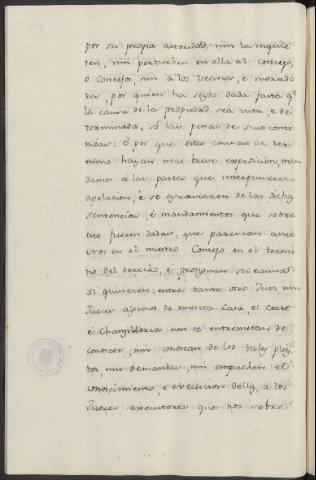 por su propia actoridad, nin la inquie
ten, nin perturben en ella al concejo,
o concejos, nin a los vecinos, é morado
res, por quien ha seydo dada fasta qe
la causa de la propiedad sea vista, e de
terminada, so las penas de suso conte
nidas: É por que estas causas de tér
mino hayan mas breve expedicion, man
damos a las partes que interpusieren
apelacion, é se agraviaren de las dichas
sentencias, é mandamientos que sobre
esto fueren dadas, que parezcan ante
nos en el nuestro Consejo en el termi
no del derecho, é prosigan sus causas
si quisieren; entre tanto otro Juez nin
Jueces algunos de nuestra Casa, é Corte
é Chancilleria non se entremetan de
conocer, nin conozcan de los tales pley
tos, nin demandas, nin empachen el
conocimiento, é execucion dellas, a los
Jueces executores que nos sobre